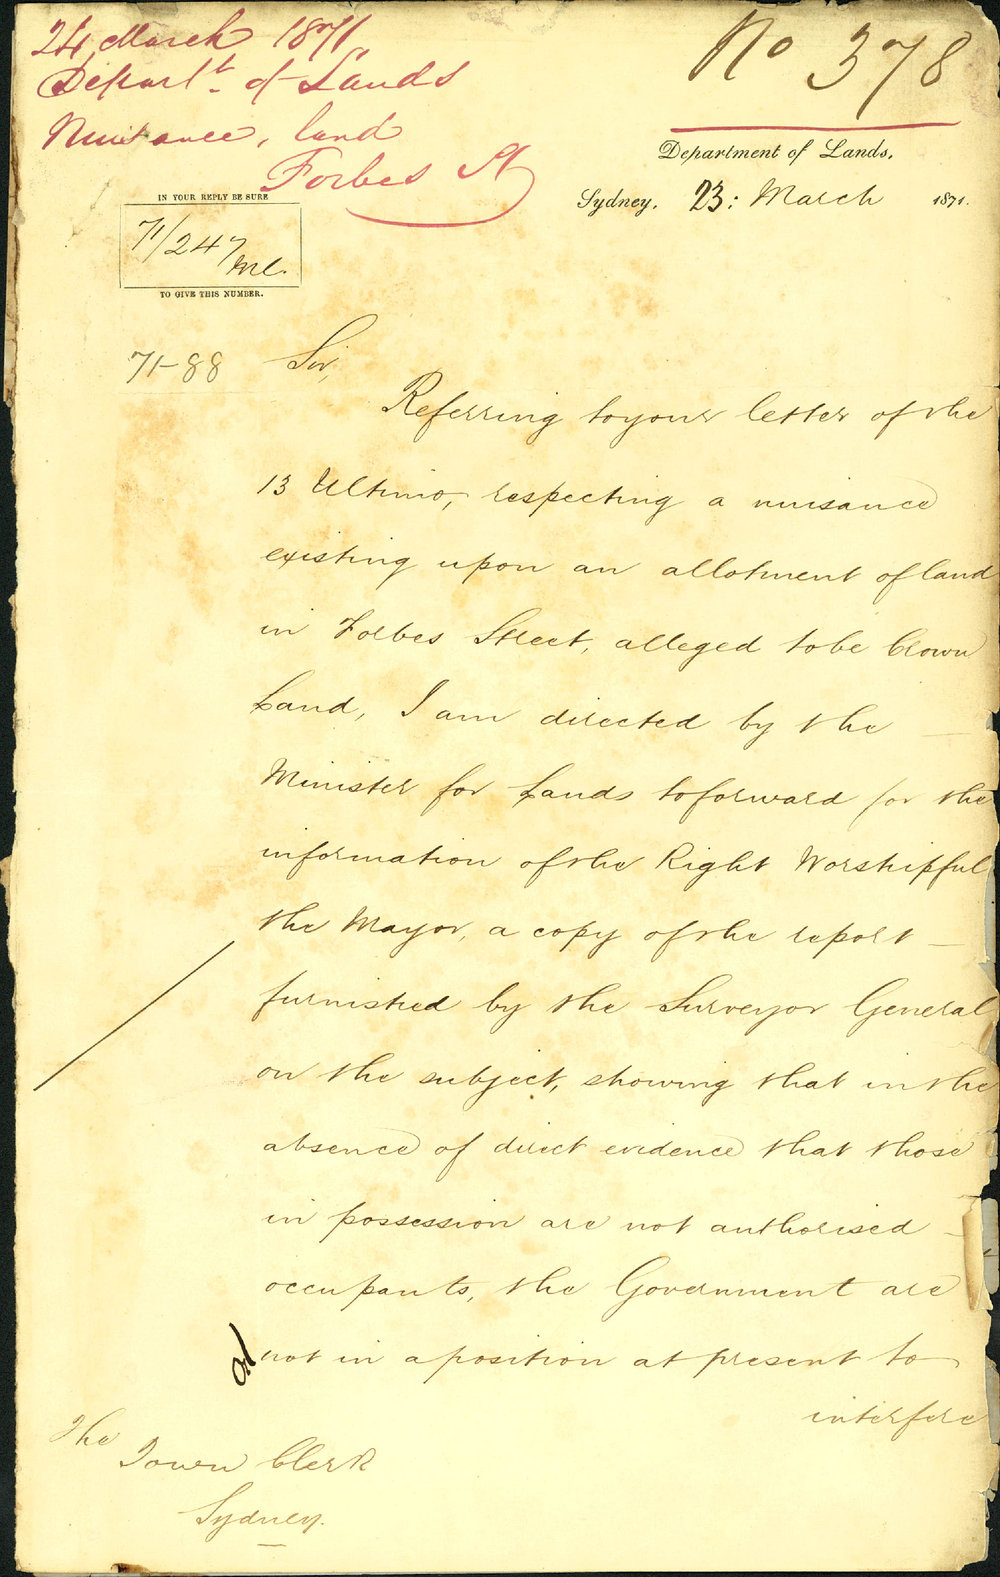 24 March 1871
Depart.t of Lands
Nuisance, land
Forbes St
No 378
Department of Lands,
Sydney, 23: March 1871.
IN YOUR REPLY BE SURE
71/247
TO GIVE THIS NUMBER.
71-88
Sir,
Referring to your letter of the
13 Ultimo, respecting a nuisance
existing upon an allotment of land
in Forbes Street, alleged to be Crown
Land, I am directed by the
Minister for Lands to forward for the
information of the Right Worshipful
the Mayor, a copy of the report
furnished by the Surveyor General
on the subject, showing that in the
absence of direct evidence that those
in possession are not authorised
occupants, the Government are
not in a position at present to
interfere
The
Town Clerk
Sydney.